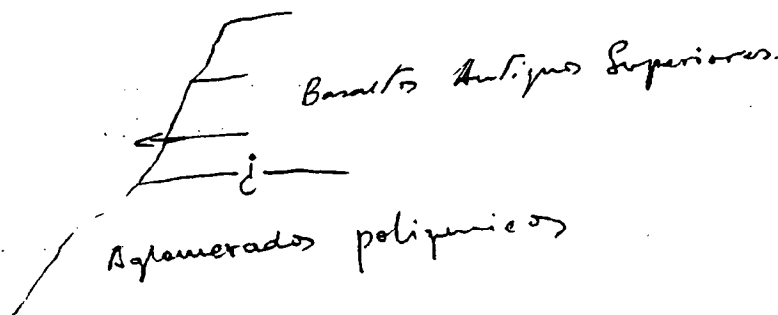 Basaltos Antiguos Superiores.
¿
Aglomerados poligenicos